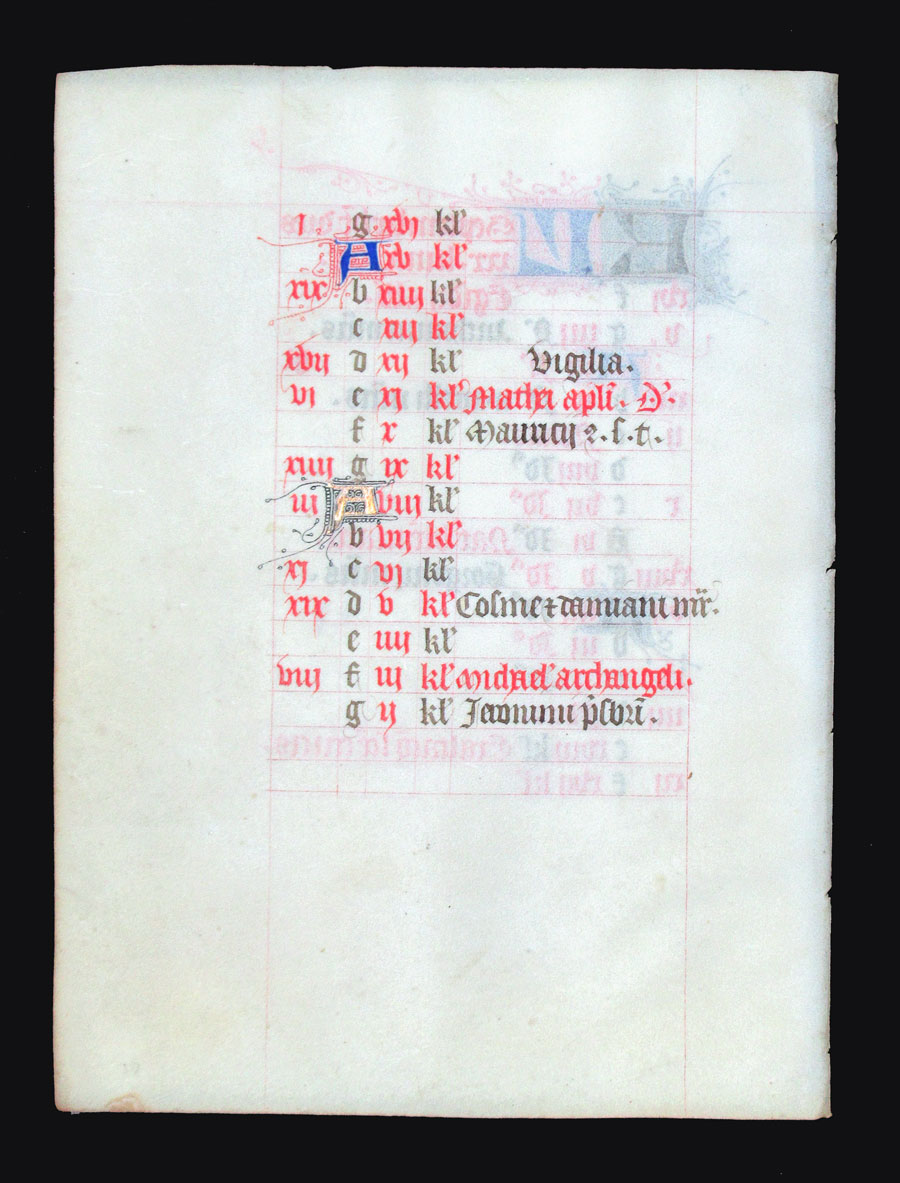 i g xvj kl'
A xv kl'
xix b xiiij kl'
c xiij kl'
xvij d xij kl' Vigilia.
vi e xj kl' Mathei apli. D'.
f x kl' Mauricij 2. s. t.
xiiij g ix kl'
iij A viij kl'
b vij kl'
xj c vj kl'
xix d v kl' Cosme & damiani mr.
e iiij kl'
viij f iij kl' Michael' archangeli.
g ij kl' Jeronimi pbri.